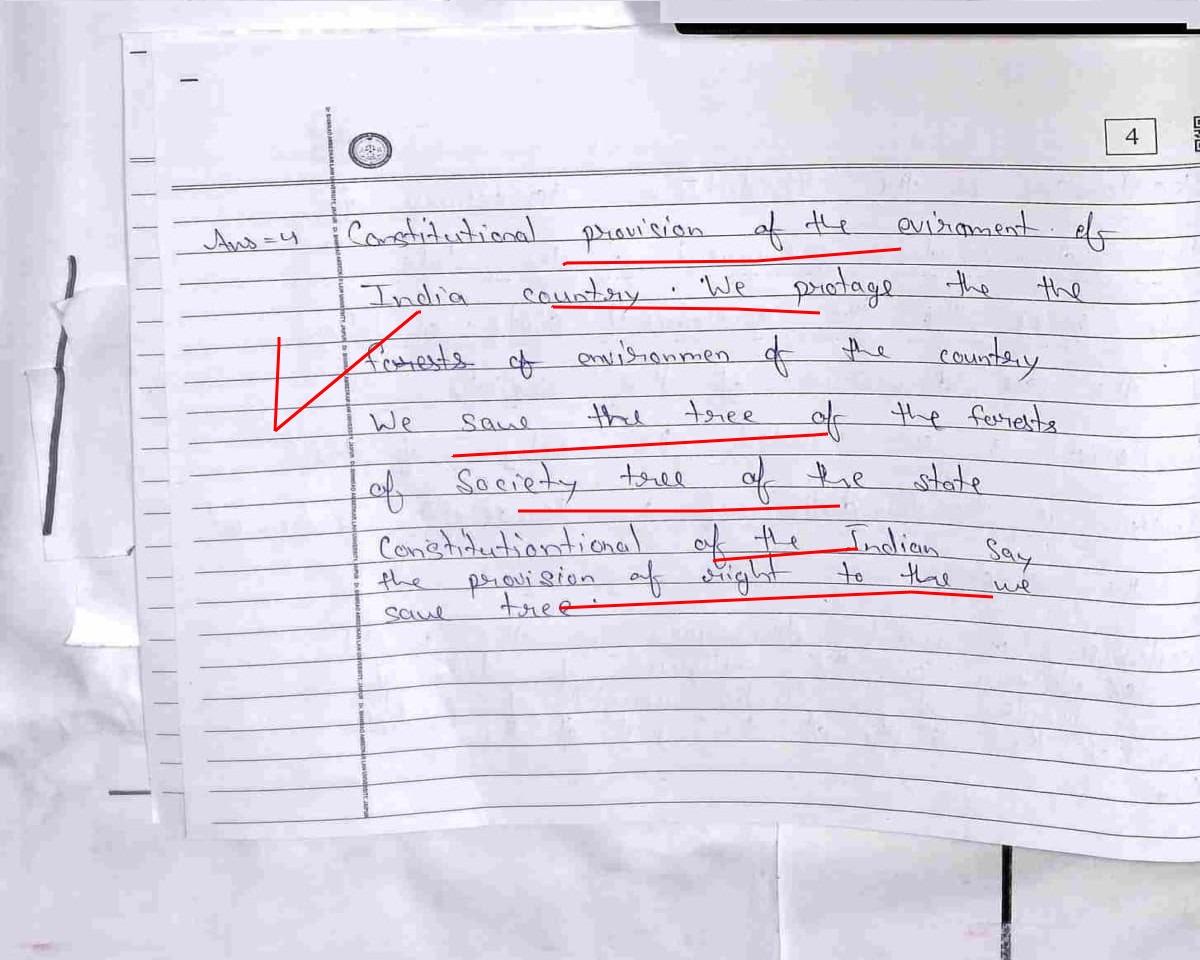 4
Ans=4 Constitutional provision of the avironment of
India country. We protage the the
forests of environmen of the country
We save the tree of the forests
of Society tree of the state
Constitutiontional of the Indian Say
the provision of right to the we
save tree.
Dr. BHIMRAO AMBEDKAR LAW UNIVERSITY, JAIPUR